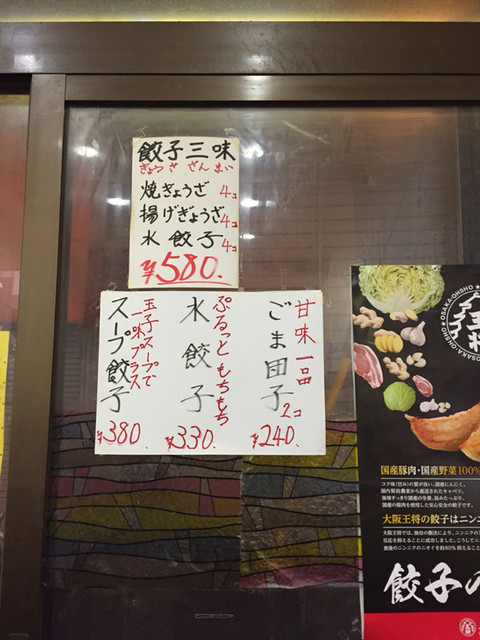 餃子三味
ぎょうざざんまい
焼ぎょうざ 4コ
揚げぎょうざ 4コ
水餃子 4コ
¥580.
甘味一品
ごま団子 2コ
¥240.
ぷるっともちもち
水餃子
¥330.
玉子スープで
一味プラス
スープ餃子
¥380.
OSAKA-OHSHO
国産豚肉・国産野菜100%
大阪王将の餃子はニン
餃子の